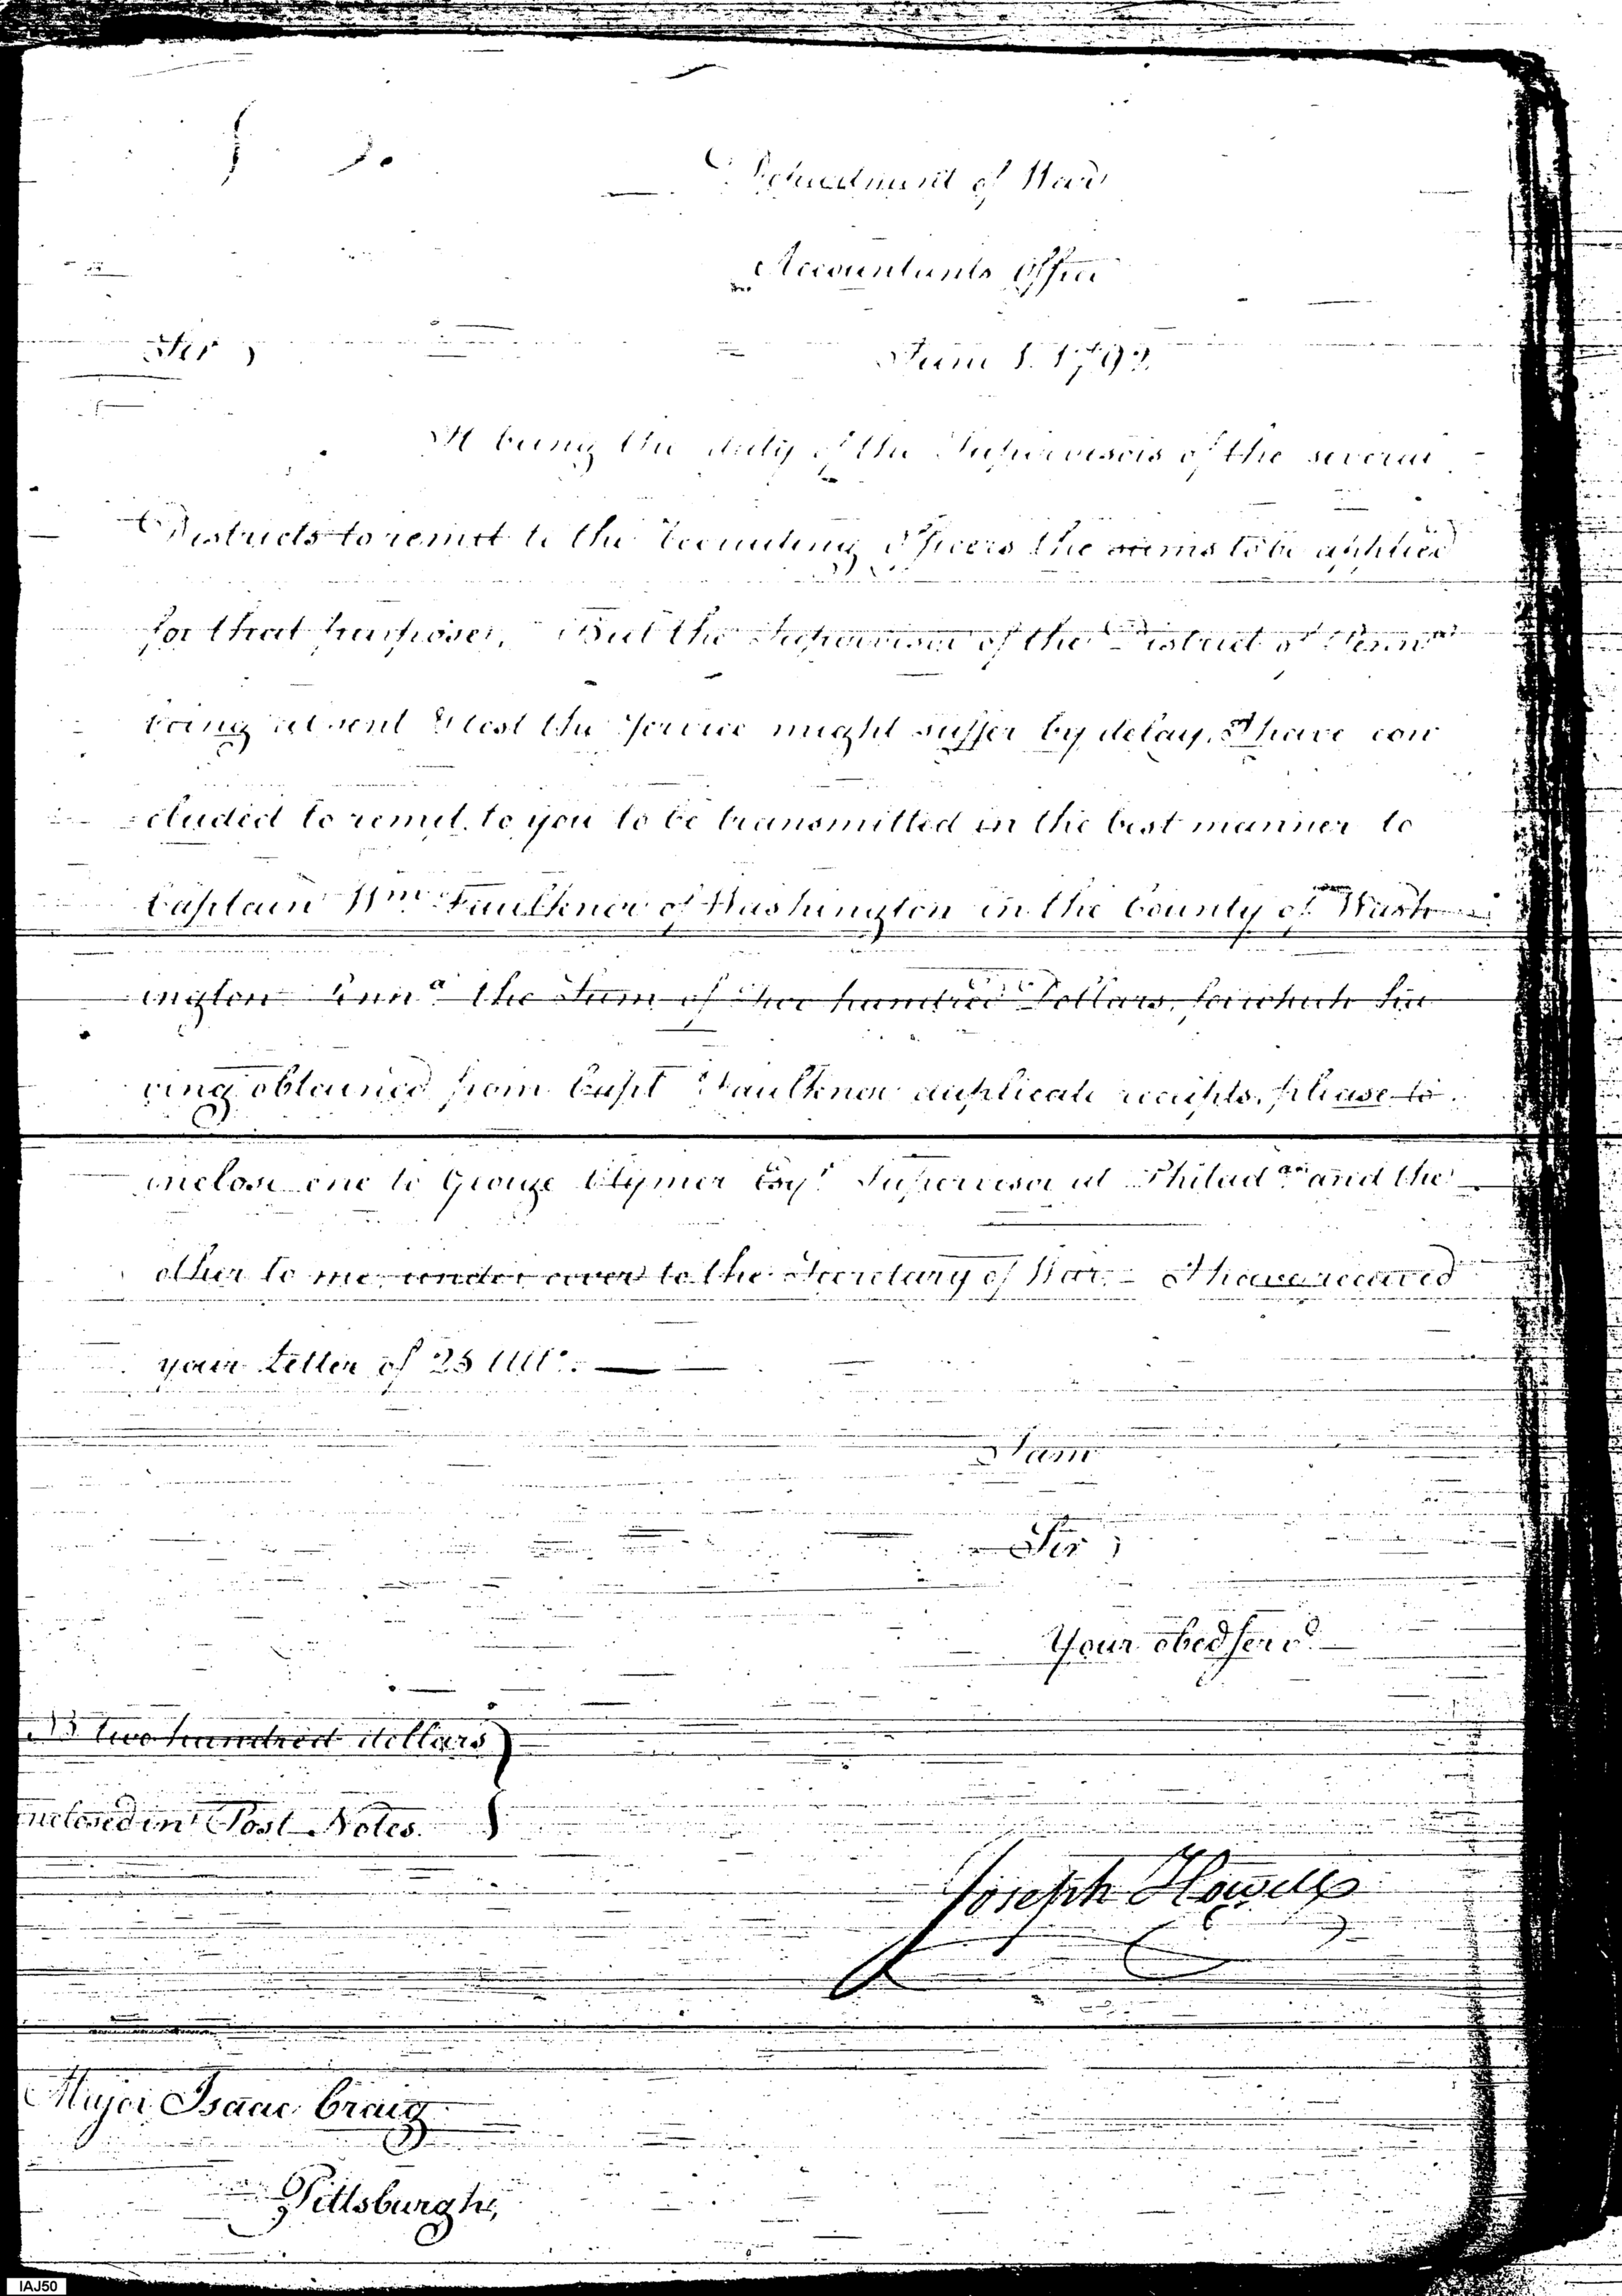 Department of War
Accountants Office
Sir, June 1. 1792.
It being the duty of the Supervisors of the several
Districts to remitt to the Recruiting Officers the sums to be applied
for that purpose, But the Supervisor of the District of Penn.a
being absent & lest the Service might suffer by delay, I have con
cluded to remit to you to be transmitted in the best manner to
Captain Wm. Faulkner of Washington in the County of Wash
ington Penn.a the Sum of two hundred Dollars, for which ha
ving obtained from Capt Faulkner duplicate receipts, please to
inclose one to George Clymer Esqr. Supervisor at Philad.a and the
other to me under cover to the Secretary of War. - I have received
your Letter of 25 Ulto. —
I am
Sir,
Your obed servt.
NB two hundred dollars
inclosed in Post Notes.
Joseph Howell
Major Isaac Craig
Pittsburgh,
IAJ50